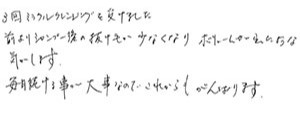 3回ミラクルクレンジングを受けました
前よりシャンプー後の抜け毛が少なくなり ボリュームが出たような
気がします。
毎日続ける事が大事なので これからも がんばります。